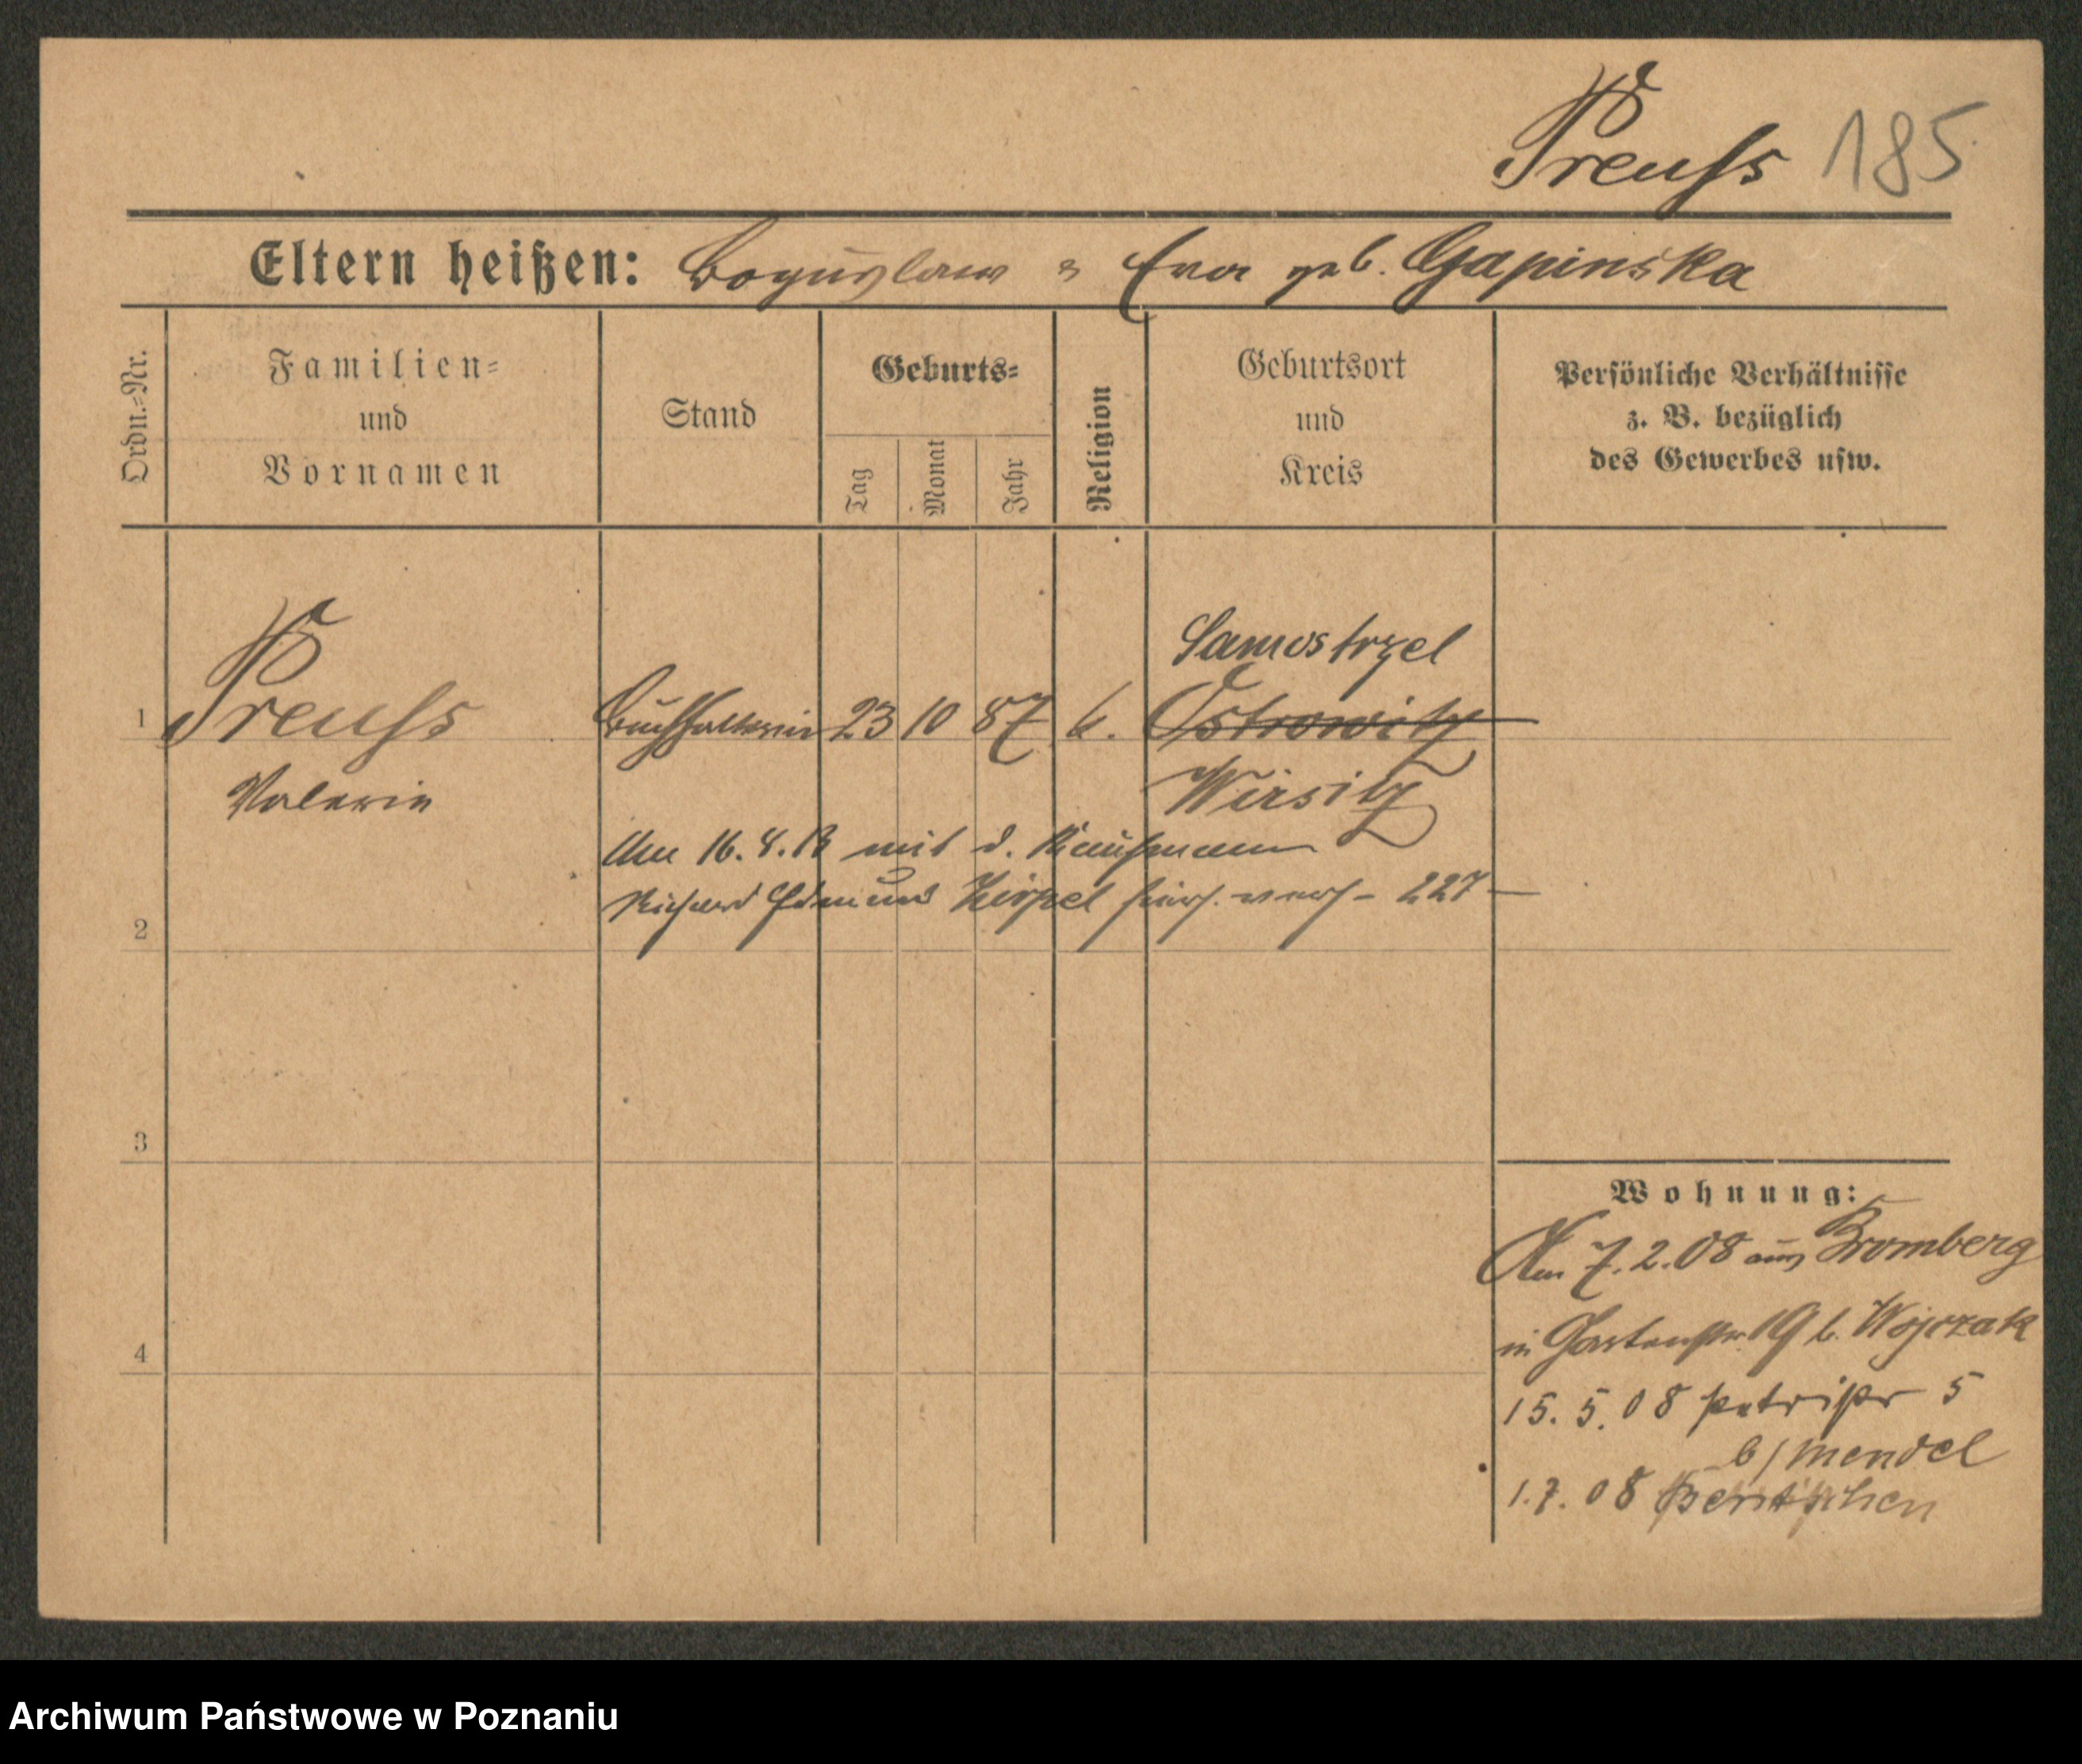 Preuſs 185
Eltern heißen: Boguslaw & Eva geb. Gapinska
Ordn.-Nr.
Familien-
und
Vornamen
Stand
Geburts-
Tag
Monat
Jahr
Religion
Geburtsort
und
Kreis
Persönliche Verhältnisse
z. B. bezüglich
des Gewerbes usw.
Samostrzel
1 Preuſs Buchhalterin 23 10 87 k. Ostrowitz
Valerie Wirsitz
Am 16. 8. 13 mit d. Kaufmann
Richard Edmund hier 227
2
3
4
Wohnung:
Am 7. 2. 08 aus Bromberg
in Gartenstr. 19 b. Wojczak
15. 5. 08 Petristr 5
b/ Mendel
1. 7. 08 Bentschen
Archiwum Państwowe w Poznaniu